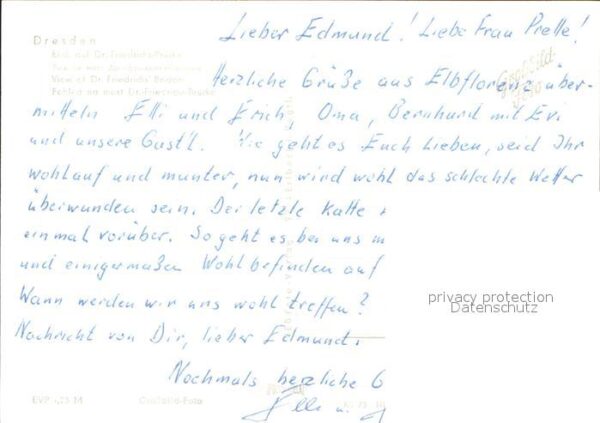 Lieber Edmund! Liebe Frau Prelle!
Dresden
Blick auf Dr.-Friedrichs-Brücke
View of Dr. Friedrichs' Bridge
Herzliche Grüße aus Elbflorenz über-
mitteln Elli und Erich, Oma, Bernhard mit Evi
und unsere Gust'l. Wie geht es Euch Lieben, seid Ihr
wohlauf und munter, nun wird wohl das schlechte Wetter
überwunden sein. Der letzte kalte
einmal vorüber. So geht es bei uns in
und einigermaßen Wohlbefinden auf
Wann werden wir uns wohl treffen?
Nachricht von Dir, lieber Edmund.
Nochmals herzliche G
Elli u.
privacy protection
Datenschutz
EVP 0,25 M
Grafolio-Foto